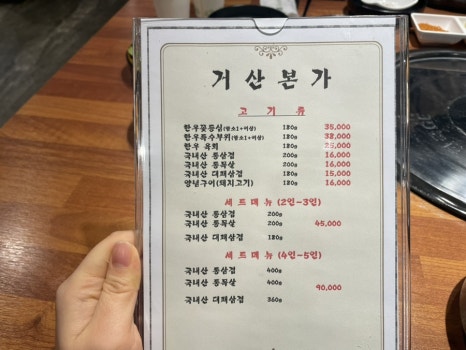 거산본가
고기류
한우꽃등심(암소1+이상) 180g 35,000
한우특수부위(암소1+이상) 180g 38,000
한우 육회 180g 25,000
국내산 통삼겹 200g 16,000
국내산 통목살 200g 16,000
국내산 대패삼겹 180g 15,000
양념구이(돼지고기) 180g 16,000
세트메뉴 (2인~3인)
국내산 통삼겹 200g
국내산 통목살 200g 45,000
국내산 대패삼겹 180g
세트메뉴 (4인~5인)
국내산 통삼겹 400g
국내산 통목살 400g 90,000
국내산 대패삼겹 360g